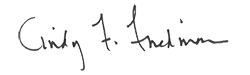 Cindy F. Friedman